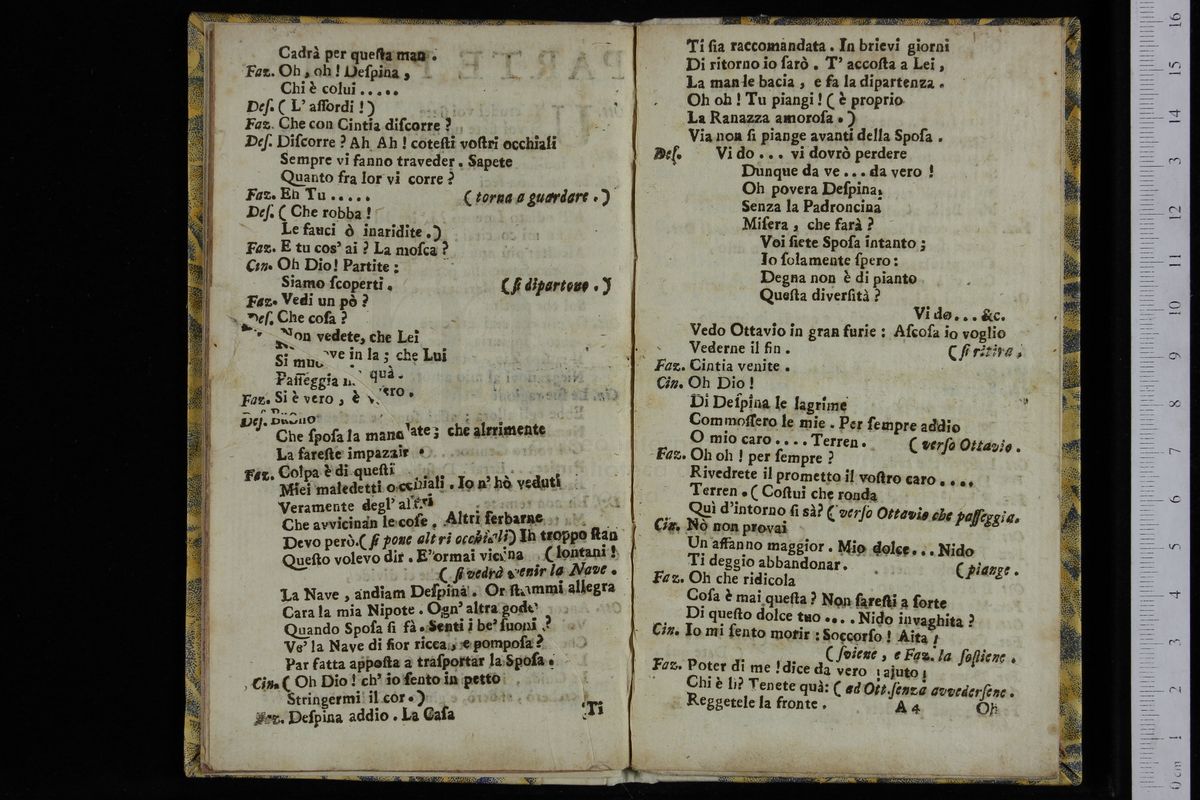 Cadrà per queſta man.
Faz. Oh, oh! Deſpina,
Chi è colui.....
Deſ. (L' aſſordi!)
Faz. Che con Cintia diſcorre?
Deſ. Diſcorre? Ah Ah! coteſti voſtri occhiali
Sempre vi fanno traveder. Sapete
Quanto fra lor vi corre?
Faz. Eh Tu..... (torna a guardare.)
Deſ. (Che robba!
Le fauci ò inaridite.)
Faz. E tu cos' ai? La moſca?
Cin. Oh Dio! Partite:
Siamo ſcoperti. (ſi dipartono.)
Faz. Vedi un pò?
Deſ. Che coſa?
Non vedete, che Lei
Si muove in la; che Lui
Paſſeggia quà.
Faz. Si è vero, è vero.
Deſ. Buono
Che ſpoſa la mandate; che alrrimente
La fareſte impazzir.
Faz. Colpa è di queſti
Miei maledetti occhiali. Io n' hò veduti
Veramente degl' altri
Che avvicinan le coſe. Altri ſerbarne
Devo però. (ſi pone altri occhiali) Ih troppo ſtan
Queſto volevo dir. E' ormai vicina (lontani!
(ſi vedrà venir la Nave.
La Nave, andiam Deſpina. Or ſtammi allegra
Cara la mia Nipote. Ogn' altra gode
Quando Spoſa ſi fà. Senti i be' ſuoni?
Ve' la Nave di fior ricca, e pompoſa?
Par fatta appoſta a traſportar la Spoſa.
Cin. (Oh Dio! ch' io ſento in petto
Stringermi il cor.)
Faz. Deſpina addio. La Caſa
Ti
Ti ſia raccomandata. In brievi giorni
Di ritorno io ſarò. T' accoſta a Lei,
La man le bacia, e fa la dipartenza.
Oh oh! Tu piangi! (è proprio
La Ranazza amoroſa.)
Via non ſi piange avanti della Spoſa.
Deſ. Vi do... vi dovrò perdere
Dunque da ve... da vero!
Oh povera Deſpina,
Senza la Padroncina
Miſera, che farà?
Voi ſiete Spoſa intanto;
Io ſolamente ſpero:
Degna non è di pianto
Queſta diverſità?
Vi do... &c.
Vedo Ottavio in gran furie: Aſcoſa io voglio
Vederne il fin. (ſi ritira.
Faz. Cintia venite.
Cin. Oh Dio!
Di Deſpina le lagrime
Commoſſero le mie. Per ſempre addio
O mio caro.... Terren. (verſo Ottavio.
Faz. Oh oh! per ſempre?
Rivedrete il prometto il voſtro caro....
Terren. (Coſtui che ronda
Quì d'intorno ſi sà? (verſo Ottavio che paſſeggia.
Cin. Nò non provai
Un affanno maggior. Mio dolce... Nido
Ti deggio abbandonar. (piange.
Faz. Oh che ridicola
Coſa è mai queſta? Non fareſti a ſorte
Di queſto dolce tuo.... Nido invaghita?
Cin. Io mi ſento morir: Soccorſo! Aita!
(ſviene, e Faz. la ſoſtiene.
Faz. Poter di me! dice da vero! ajuto!
Chi è lì? Tenete quà: (ad Ott. ſenza avvederſene.
Reggetele la fronte.
A 4 Oh